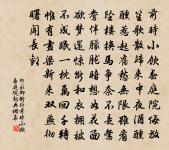 前時小飲春庭院悔放
笙歌散歸來中夜酒醺
醺惹起舊愁無限雖看
墜樓換馬爭奈不是鴛
鴦伴朦朧暗想如花面
欲夢還驚斷和衣擁被
不成眠一枕萬回千轉
惟有畫梁新來雙燕徹
曙聞長歎
春庭院